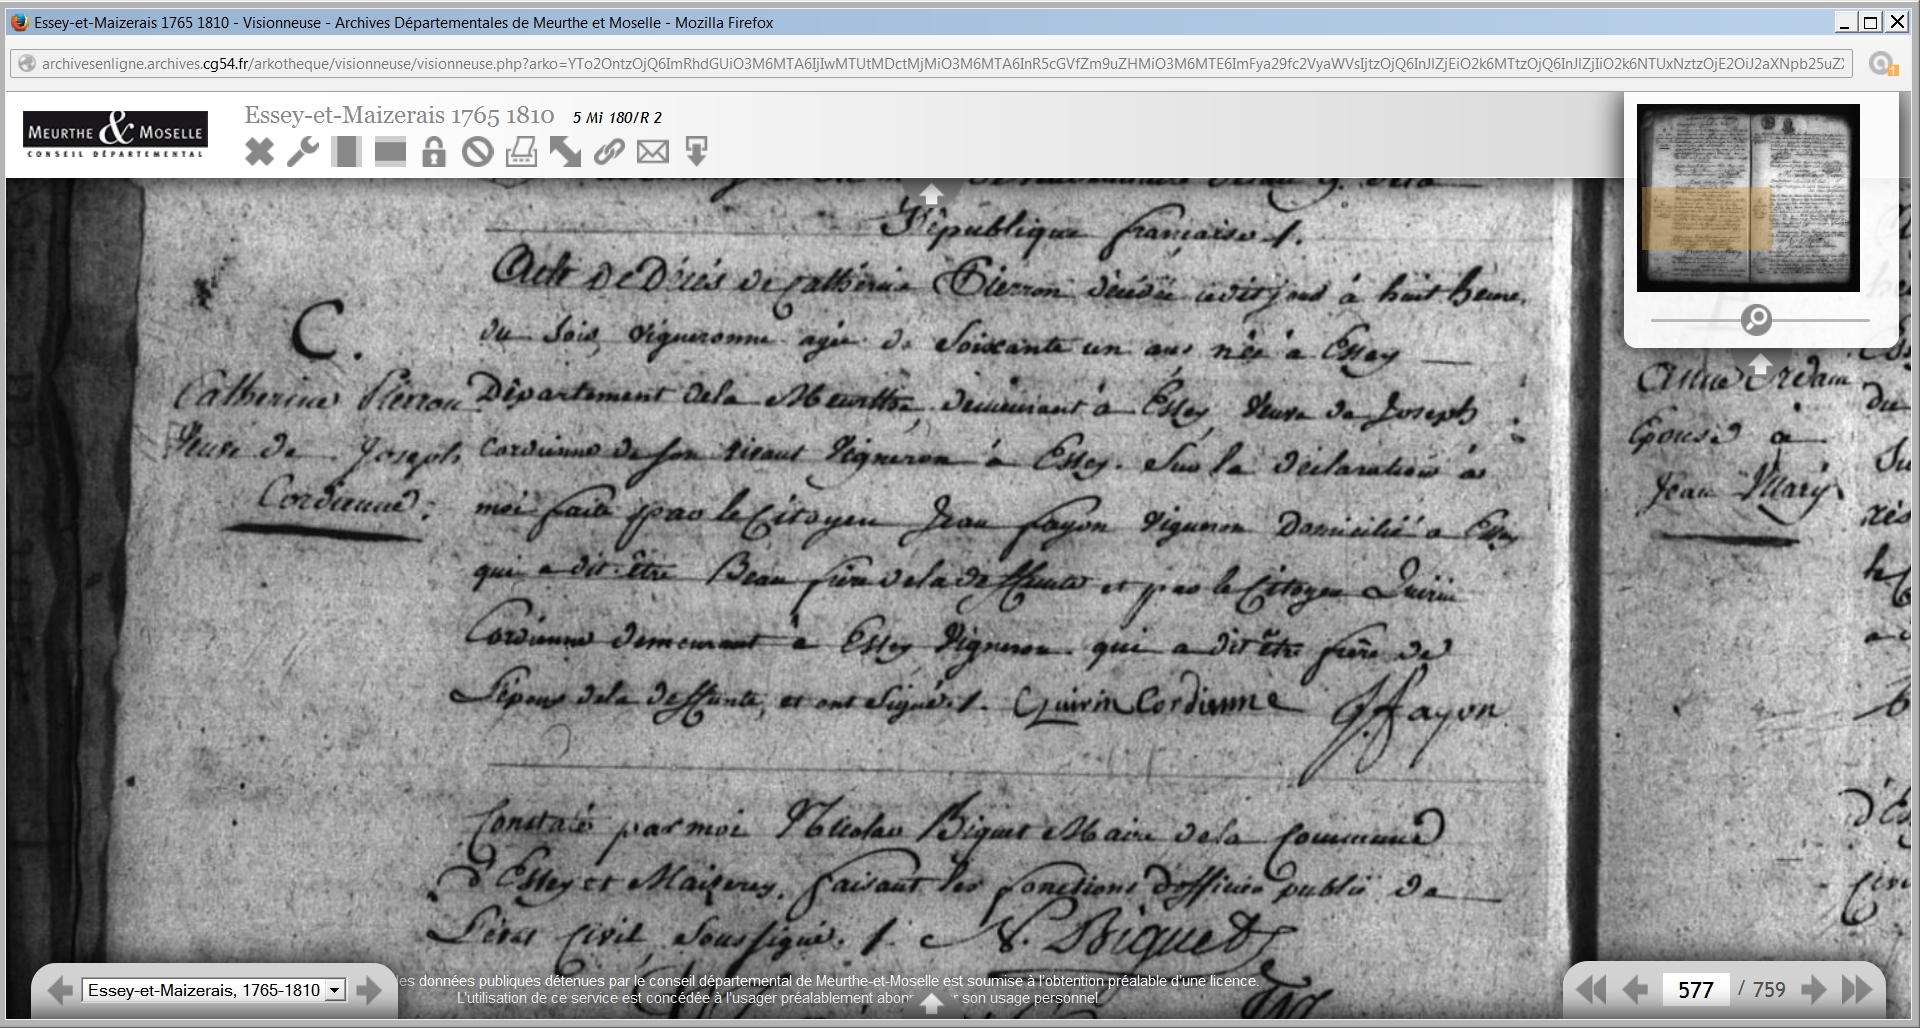 Essey-et-Maizerais 1765 1810 - Visionneuse - Archives Départementales de Meurthe et Moselle - Mozilla Firefox
archivesenligne.archives.cg54.fr/arkotheque/visionneuse/visionneuse.php?arko=
MEURTHE & MOSELLE
CONSEIL DÉPARTEMENTAL
Essey-et-Maizerais 1765 1810 5 Mi 180/R 2
République française /.
Acte De Décès de Catherine Pierron décédée cedit jour à huit heure
du Soir, Vigneronne agée de Soixante un ans née à Essey
Département dela Meurthe, demeurant à Essey, Veuve de Joseph
Cordienne de son vivant Vigneron à Essey. Sur la déclaration à
moi faite par le Citoyen Jean fayon Vigneron Domicilié à Essey
qui a dit être Beau frère dela deffunte et par le Citoyen Quirin
Cordienne demeurant à Essey Vigneron qui a dit être frère de
L'époux dela deffunte, et ont Signé /. Quirin Cordienne J fayon
C.
Catherine Pierron
Veuve de Joseph
Cordienne :
Constaté par moi Nicolas Biquet Maire dela Commune
d'Essey et Maizerey, faisant les fonctions d'officier public de
L'état Civil Soussigné. /. N. Biquet
Épouse a
Jean Mary
es données publiques détenues par le conseil départemental de Meurthe-et-Moselle est soumise à l'obtention préalable d'une licence.
L'utilisation de ce service est concédée à l'usager préalablement abon son usage personnel
Essey-et-Maizerais, 1765-1810
577 / 759